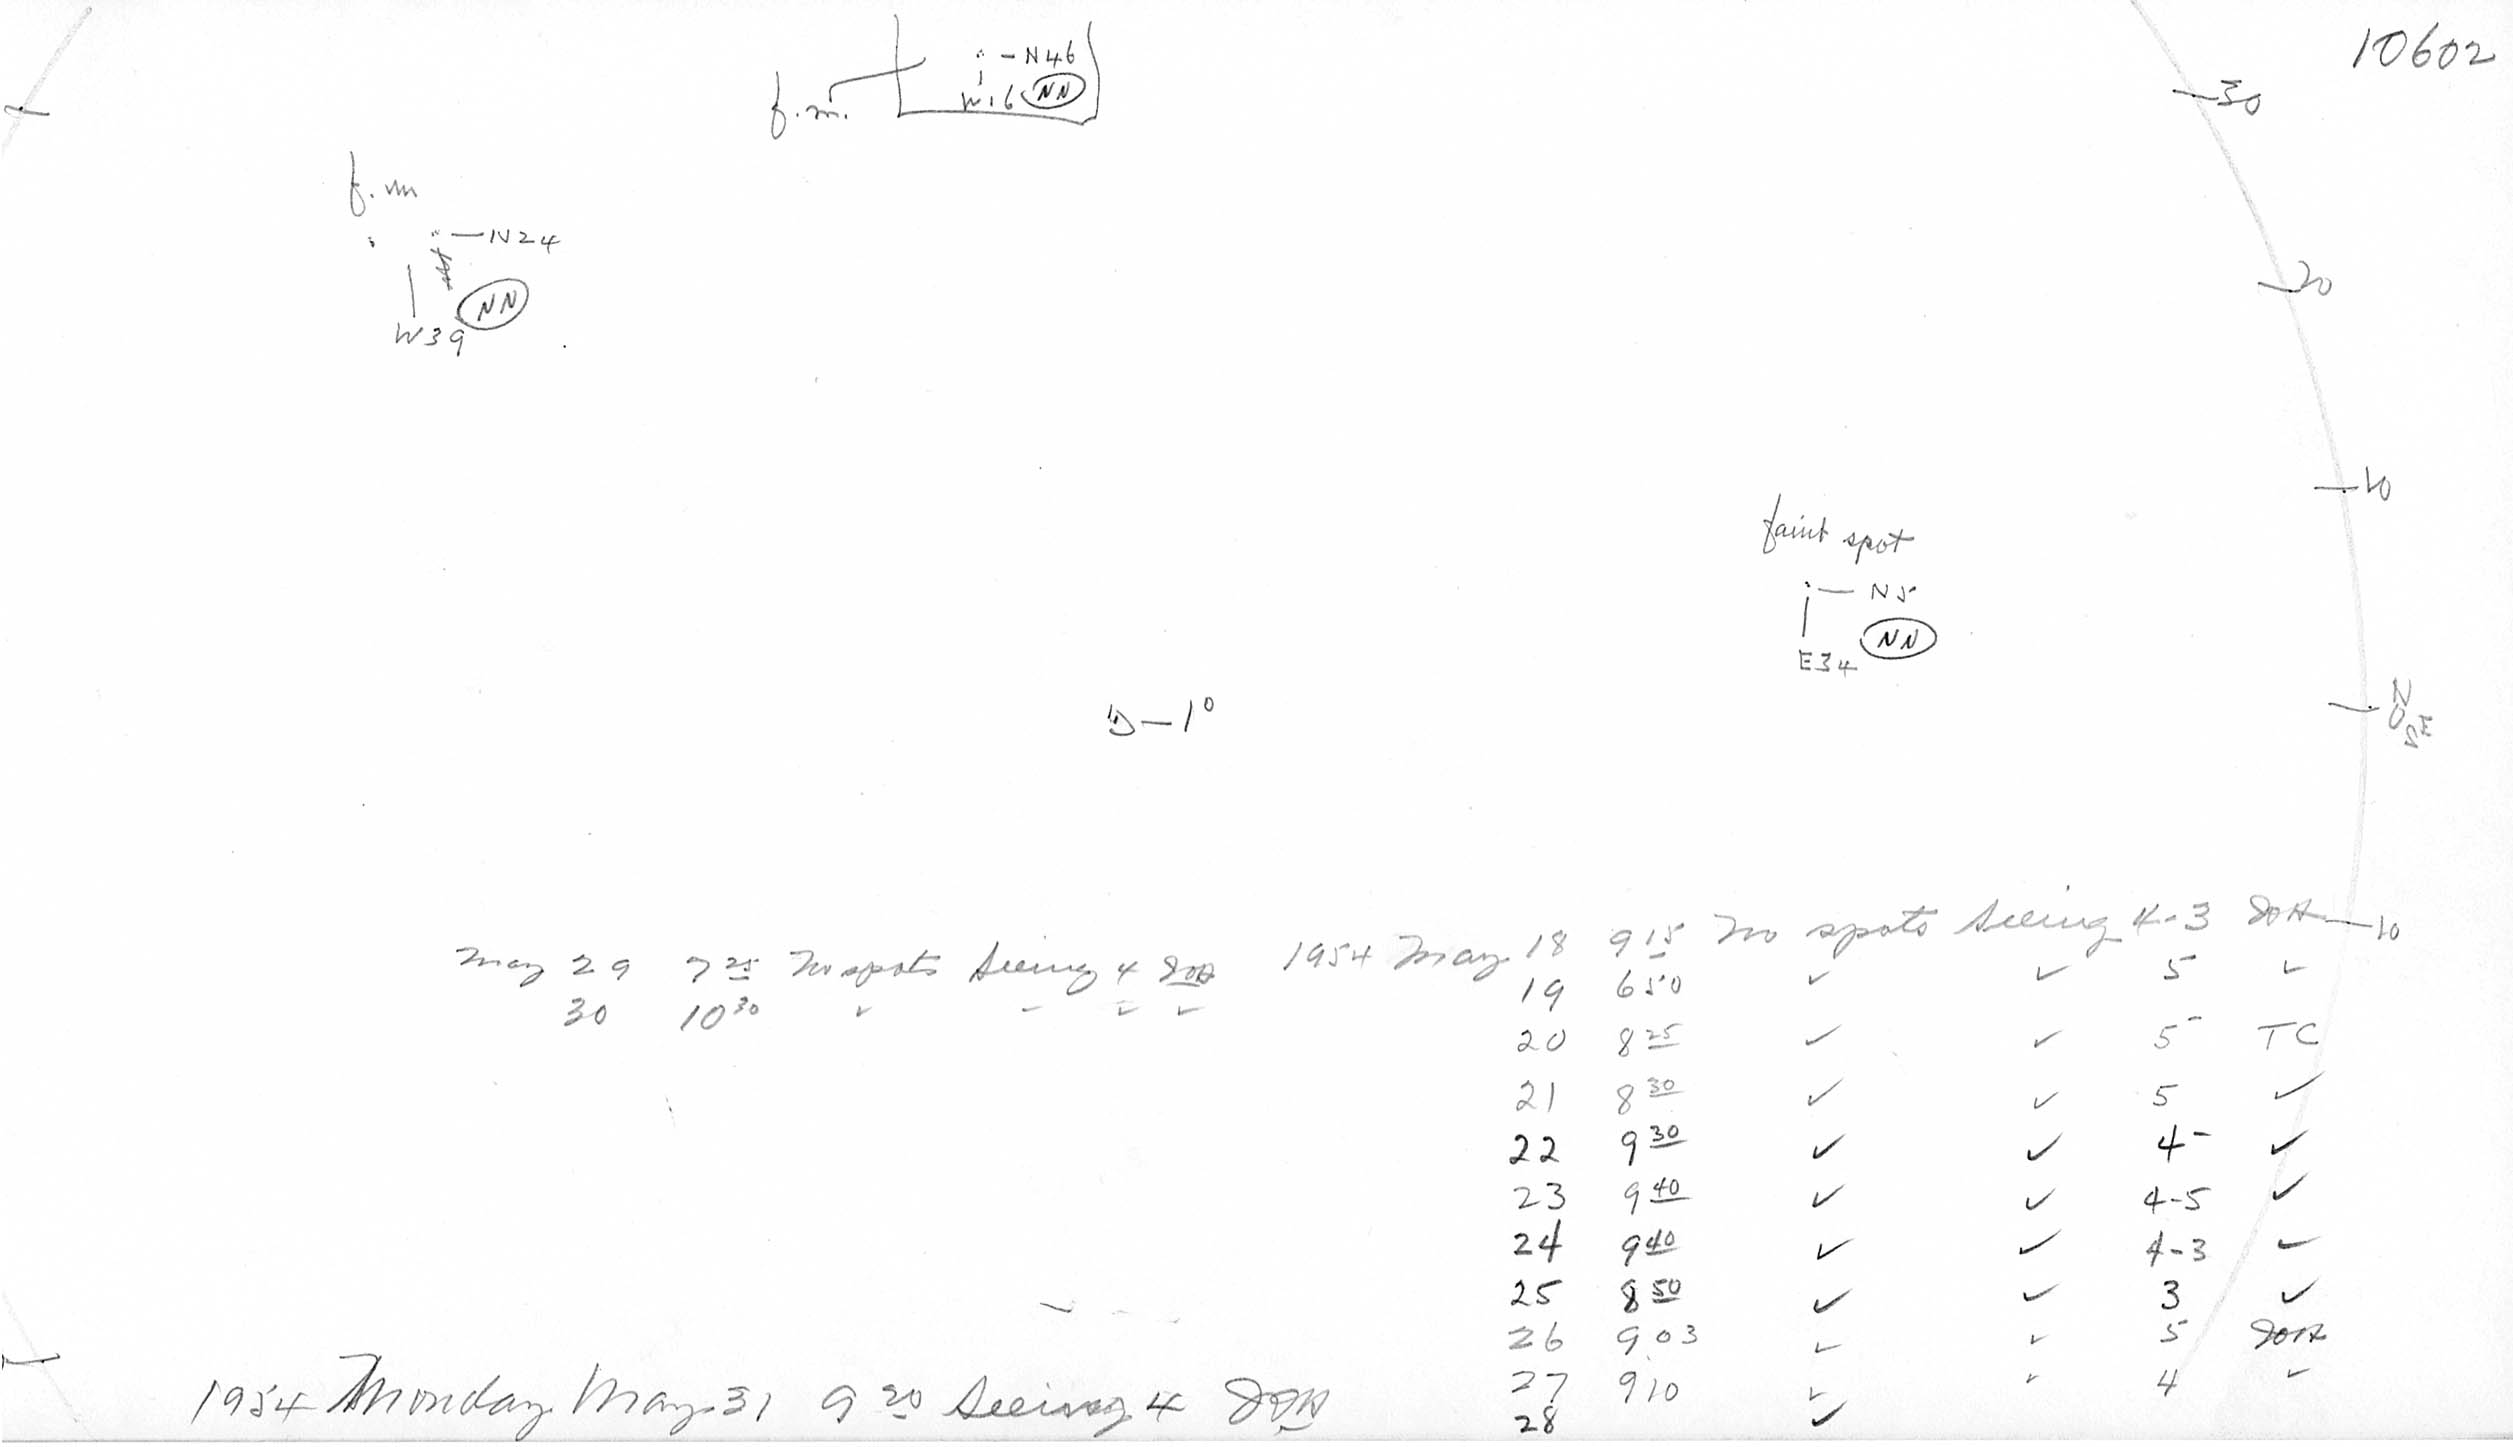 10602
N46
W16 NN
f.m.
30
f.m
N24
NN
W39
20
10
faint spot
N5
NN
E34
D—1°
N
0
S E
10
1954 May 18 9 15 No spots Seeing 4-3
19 6 50 ✓ ✓ 5 ✓
20 8 25 ✓ ✓ 5- TC
21 8 30 ✓ ✓ 5 ✓
22 9 30 ✓ ✓ 4- ✓
23 9 40 ✓ ✓ 4-5 ✓
24 9 40 ✓ ✓ 4-3 ✓
25 8 50 ✓ ✓ 3 ✓
26 9 03 ✓ ✓ 5
27 9 10 ✓ ✓ 4 ✓
28 ✓
May 29 7 25 No spots Seeing 4
30 10 30 ✓ ✓ ✓ ✓
1954 Monday May 31 9 20 Seeing 4